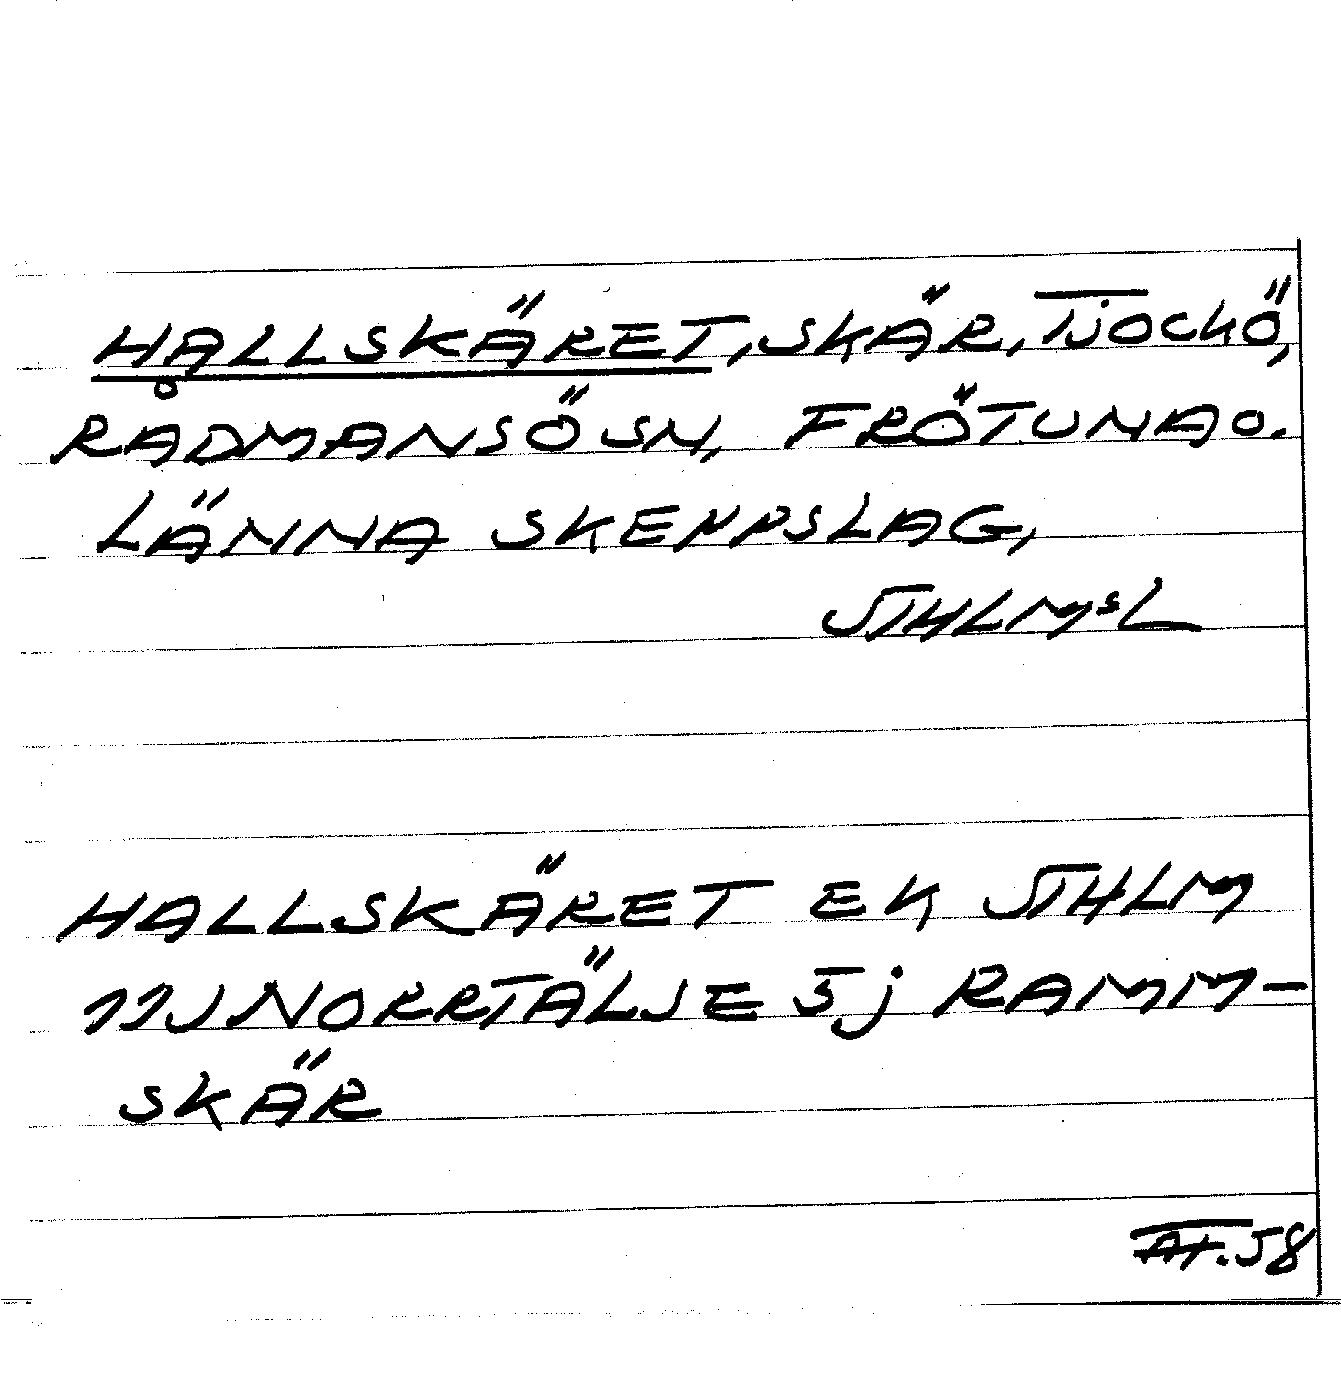 HALLSKÄRET, SKÄR, TJOCKÖ,
RÅDMANSÖ SN, FRÖTUNA O.
LÄNNA SKEPPSLAG,
STHLMSL
HALLSKÄRET EK STHLM
11J NORRTÄLJE 5j RAMM-
SKÄR
AT.58